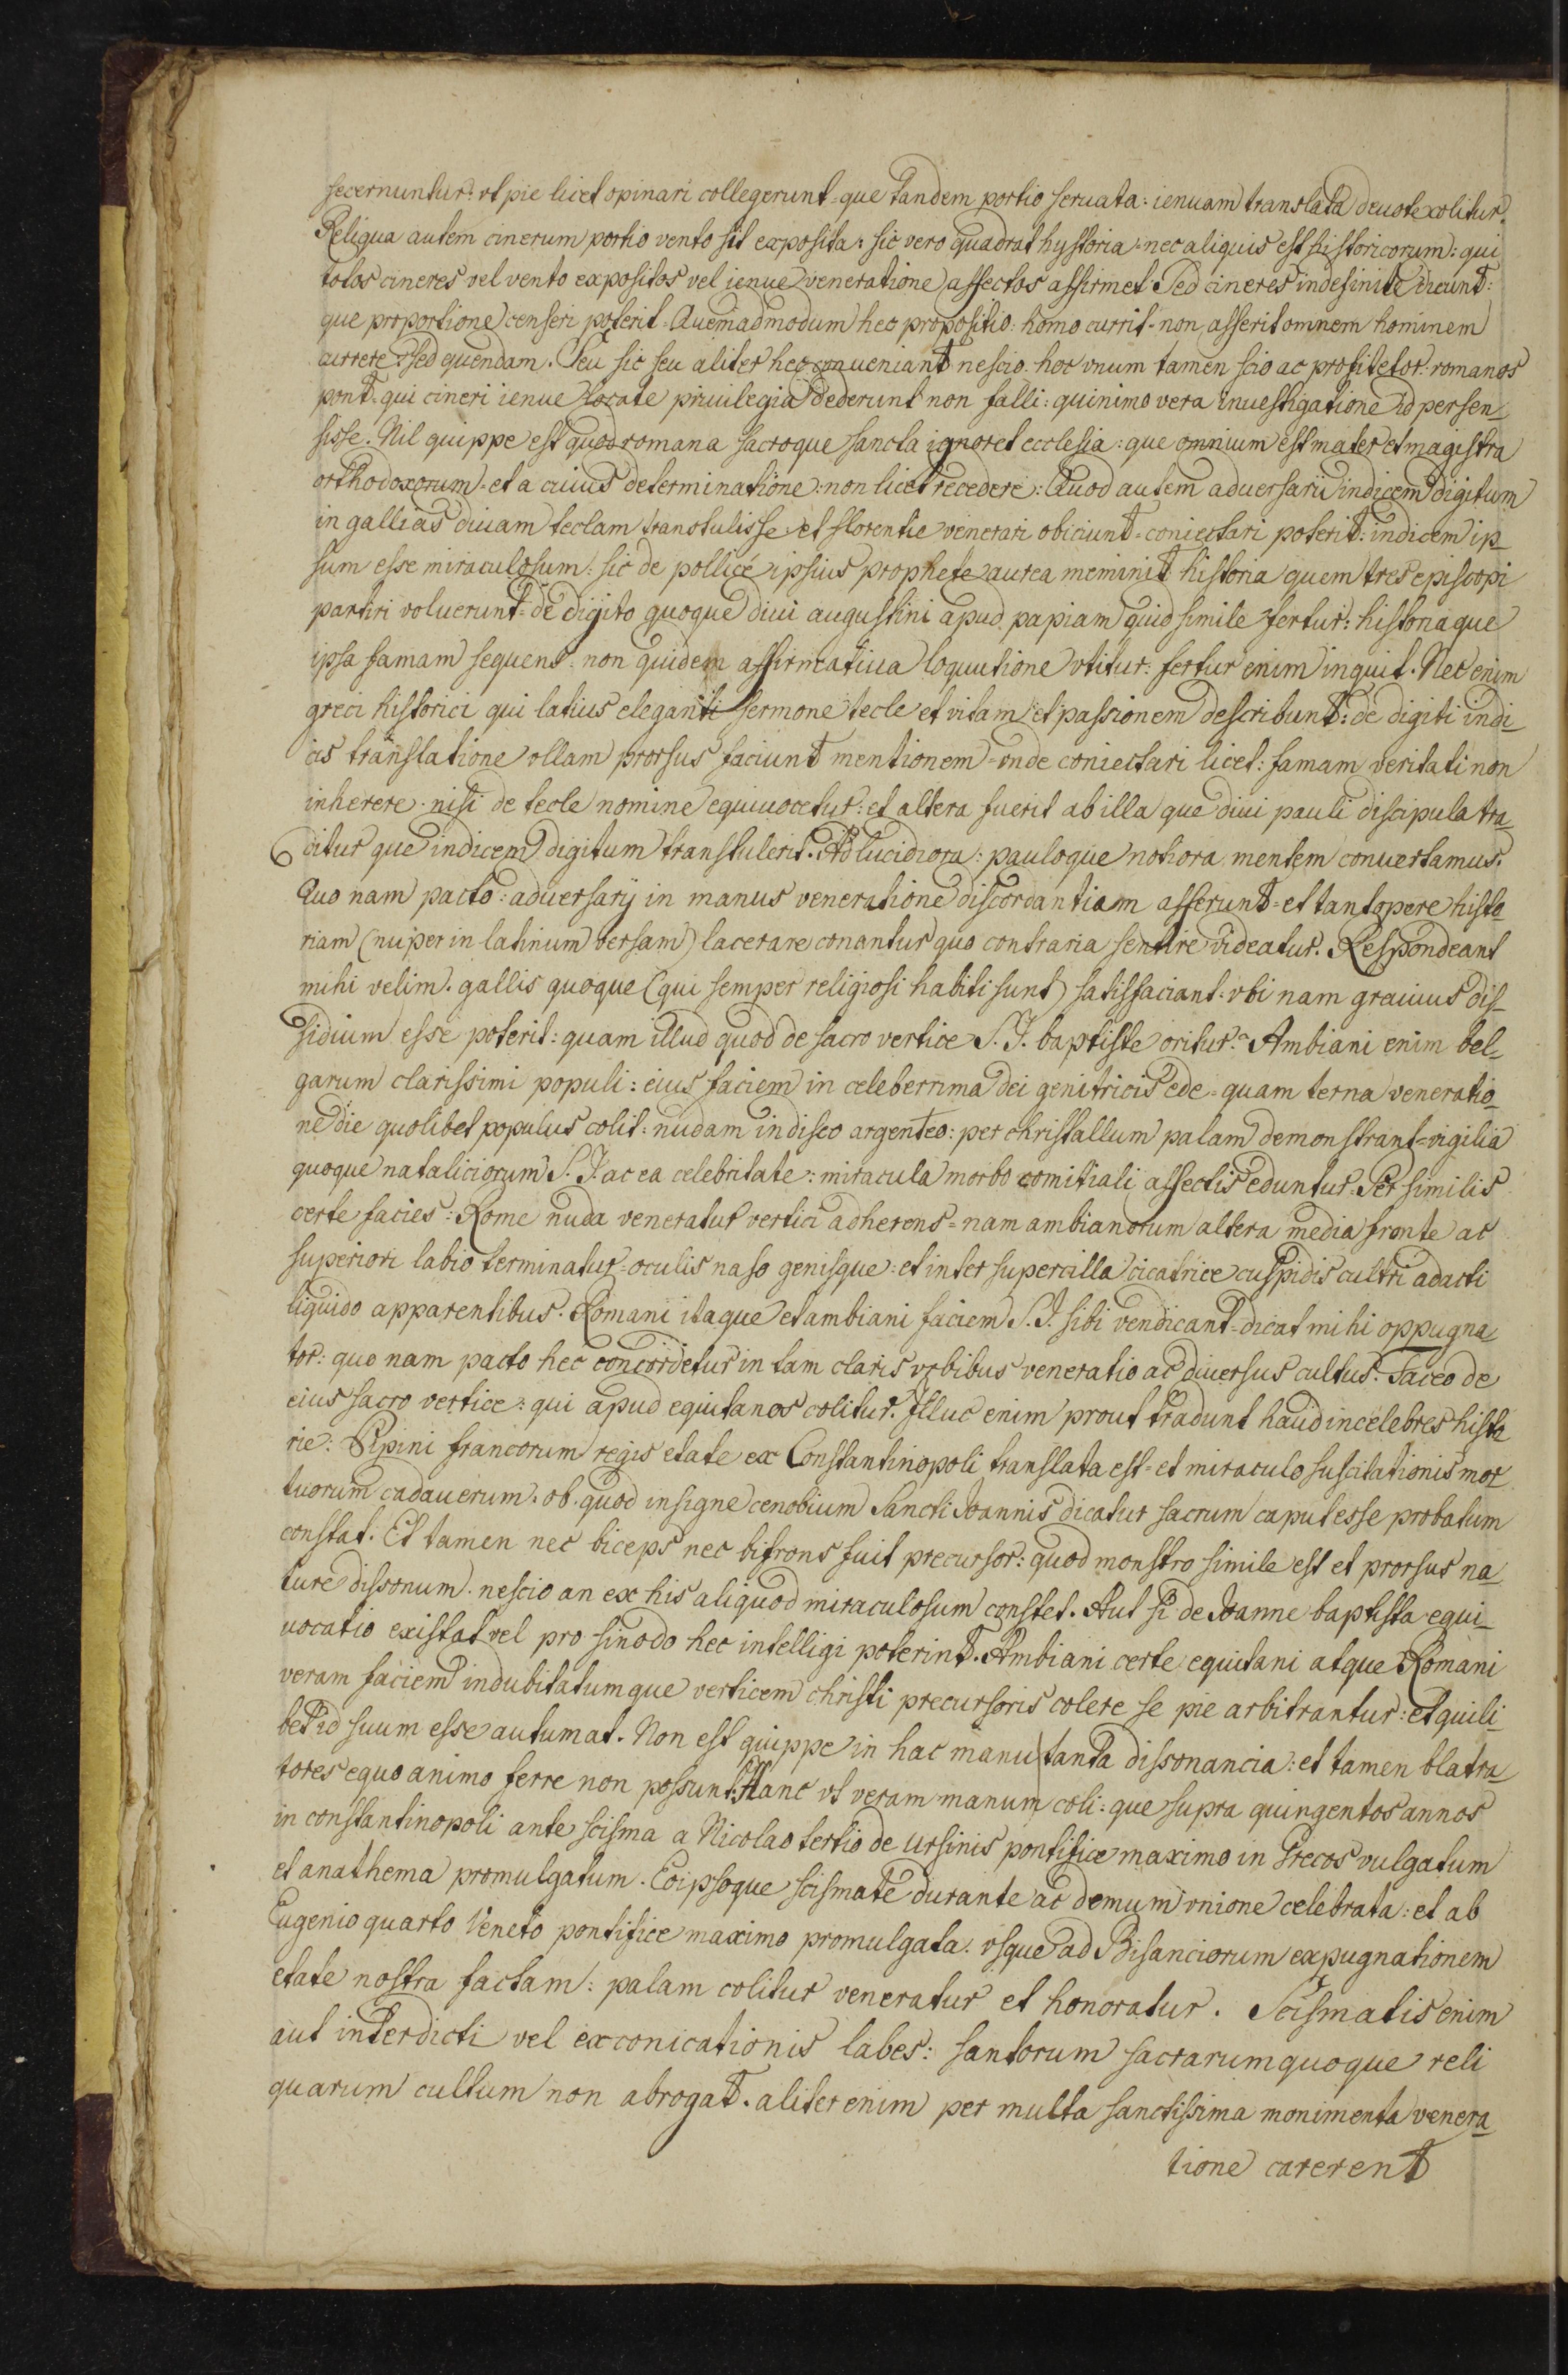 secernuntur: vt pie licet opinari collegerunt = que tandem portio seruata: ienuam translata deuote colitur.
Reliqua autem cinerum portio vento sit exposita: sic vero quadrat hystoria: nec aliquis est historicorum: qui
totos cineres vel vento expositos vel ienue veneratione affectos affirmet. Sed cineres indefinite dicunt:
que proportione censeri poterit. Quemadmodum hec propositio: homo currit = non asserit omnem hominem
currere: sed quendam. Seu sic seu aliter hec conueniant nescio. hoc vnum tamen scio ac profitetor. romanos
pont. qui cineri ienue locate priuilegia dederunt non falli: quinimo vera inuestigatione id persen=
sisse. Nil quippe est quod romana sacroque sancta ignoret ecclesia: que omnium est mater et magistra
orthodoxorum = et a cuius determinatione: non licet recedere: Quod autem aduersarii indicem digitum
in gallias diuam teclam transtulisse: et florentie venerari obiciunt = coniectari poterit: indicem ip=
sum esse miraculosum: sic de pollice ipsius prophete aurea meminit historia quem tres episcopi
partiri voluerunt = de digito quoque diui augustini apud papiam quid simile fertur: historiaque
ipsa famam sequens: non quidem affirmatiua loqutione vtitur: fertur enim inquit. Nec enim
greci historici qui latius eleganti sermone tecle et vitam et passionem describunt: de digiti indi=
cis translatione ollam prorsus faciunt mentionem = onde coniectari licet: famam veritati non
inherere. nisi de tecle nomine equiuocetur: et altera fuerit ab illa que diui pauli discipula tra=
ditur que indicem digitum transtulerit. Ad lucidiora: pauloque notiora mentem conuertamus.
Quo nam pacto: aduersarij in manus veneratione discordantiam asserunt = et tantopere histo=
riam (nuper in latinum versam) lacerare conantur quo contraria sentire videatur. Respondeant
mihi velim. gallis quoque (qui semper religiosi habiti sunt) satisfaciant: vbi nam grauius dis=
sidium esse poterit: quam illud quod de sacro vertice S. J. baptiste oritur? Ambiani enim bel=
garum clarissimi populi: eius faciem in celeberrima dei genitricis ede = quam terna veneratio=
ne die quolibet populus colit: nudam in disco argenteo: per christallum palam demonstrant = vigilia
quoque nataliciorum S. J. ac ea celebritate: miracula morbo comitiali affectis eduntur. Per similis
certe facies: Rome nuda veneratur vertici adherens = nam ambianorum altera media fronte ac
superiori labio terminatur = oculis naso genisque: et inter supercilla cicatrice cuspidis cultri adacti
liquido apparentibus. Romani itaque et ambiani faciem S. J. sibi vendicant = dicat mihi oppugna
tor: quo nam pacto hec concordetur in tam claris vrbibus veneratio ac diuersus cultus. Taceo de
eius sacro vertice: qui apud equitanos colitur. Illuc enim prout tradunt haud incelebres histo
rie: Pipini francorum regis etate ex Constantinopoli translata est = et miraculo suscitationis mor
tuorum cadauerum. ob quod insigne cenobium Sancti Joannis dicatur sacrum caput esse probatum
constat. Et tamen nec biceps nec bifrons fuit precursor: quod monstro simile est et prorsus na=
ture dissonum. nescio an ex his aliquod miraculosum constet. Aut si de Joanne baptista equi=
uocatio existat vel pro sinodo hec intelligi poterint. Ambiani certe equitani atque Romani
veram faciem indubitatumque verticem christi precursoris colere se pie arbitrantur: et quili=
bet id suum esse autumat. Non est quippe in hac manu tanta dissonancia: et tamen blatra=
tores equo animo ferre non possunt: Hanc vt veram manum coli: que supra quingentos annos
in constantinopoli ante scisma a Nicolao tertio de Ursinis pontifice maximo in Grecos vulgatum
et anathema promulgatum. Eoipsoque scismate durante ac demum vnione celebrata: et ab
Eugenio quarto Veneto pontifice maximo promulgata. vsque ad Bisanciorum expugnationem
etate nostra factam: palam colitur veneratur et honoratur. Scismatis enim
aut interdicti vel exconicationis labes: santorum sacrarumquoque reli
quarum cultum non abrogat. aliter enim per multa sanctissima monimenta venera=
tione carerent